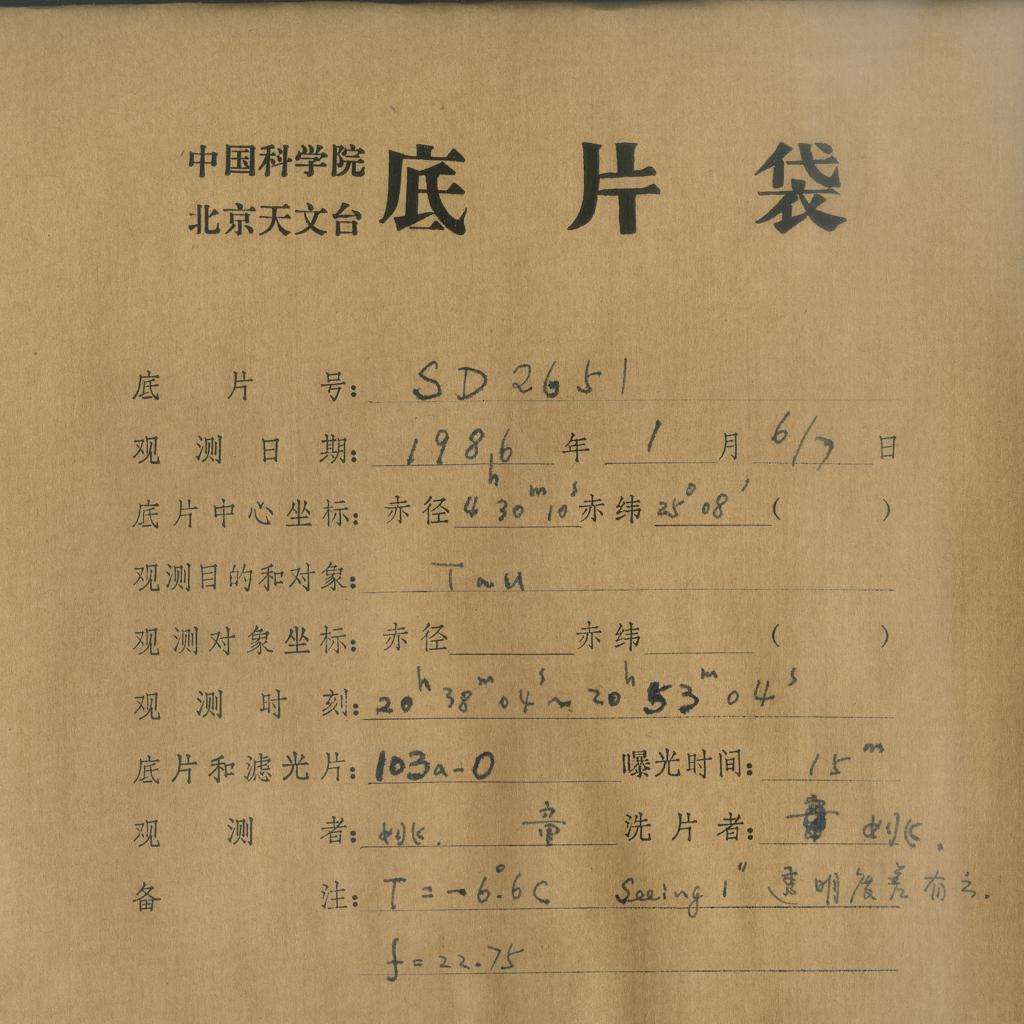 中国科学院
北京天文台 底片袋
底片号: SD2651
观测日期: 1986年1月6/7日
底片中心坐标: 赤径4ʰ30ᵐ10ˢ赤纬25°08′( )
观测目的和对象: Tau
观测对象坐标: 赤径 赤纬 ( )
观测时刻: 20ʰ38ᵐ04ˢ~20ʰ53ᵐ04ˢ
底片和滤光片: 103a-O 曝光时间: 15ᵐ
观测者: 姚. 童 洗片者: 姚.
备注: T=-6.°6C Seeing 1″ 透明度差有云.
f=22.75